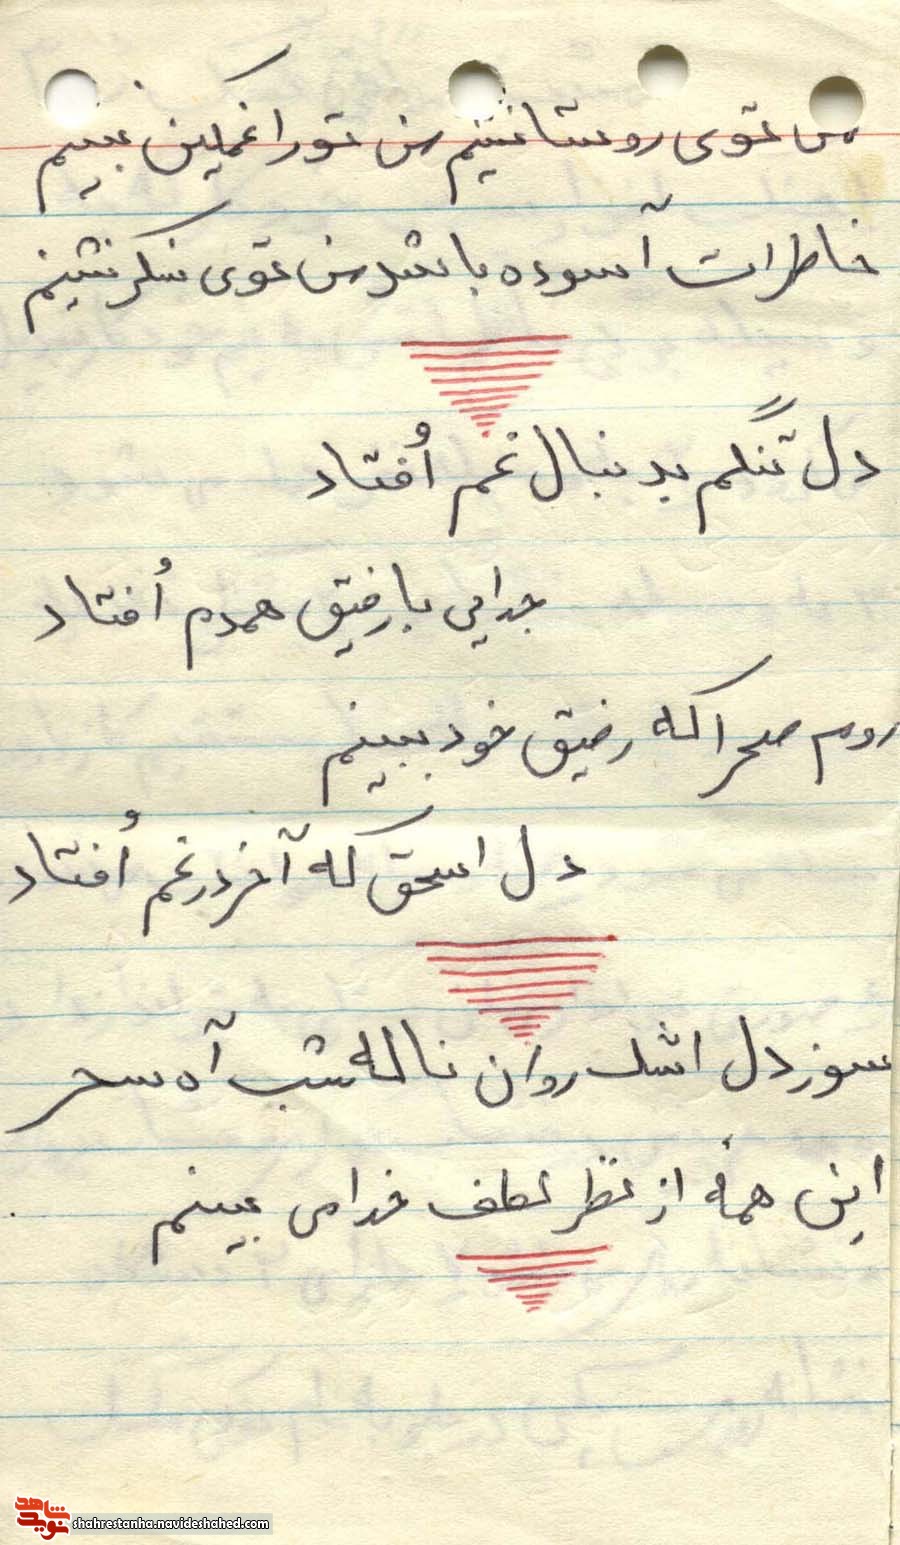 من توی روستا نشینم من تو را غمگین نبینم
خاطرات آسوده باشد من توی سنگر نشینم
دل تنگم بدنبال غم اُفتاد
جدایی با رفیق همدم اُفتاد
روم صحرا که رفیق خود ببینم
دل اسحق که آخر در غم اُفتاد
سوز دل اشک روان ناله شب آه سحر
این همه از نظر لطف خدا می بینم
شاهد
نوید
shahrestanha.navideshahed.com